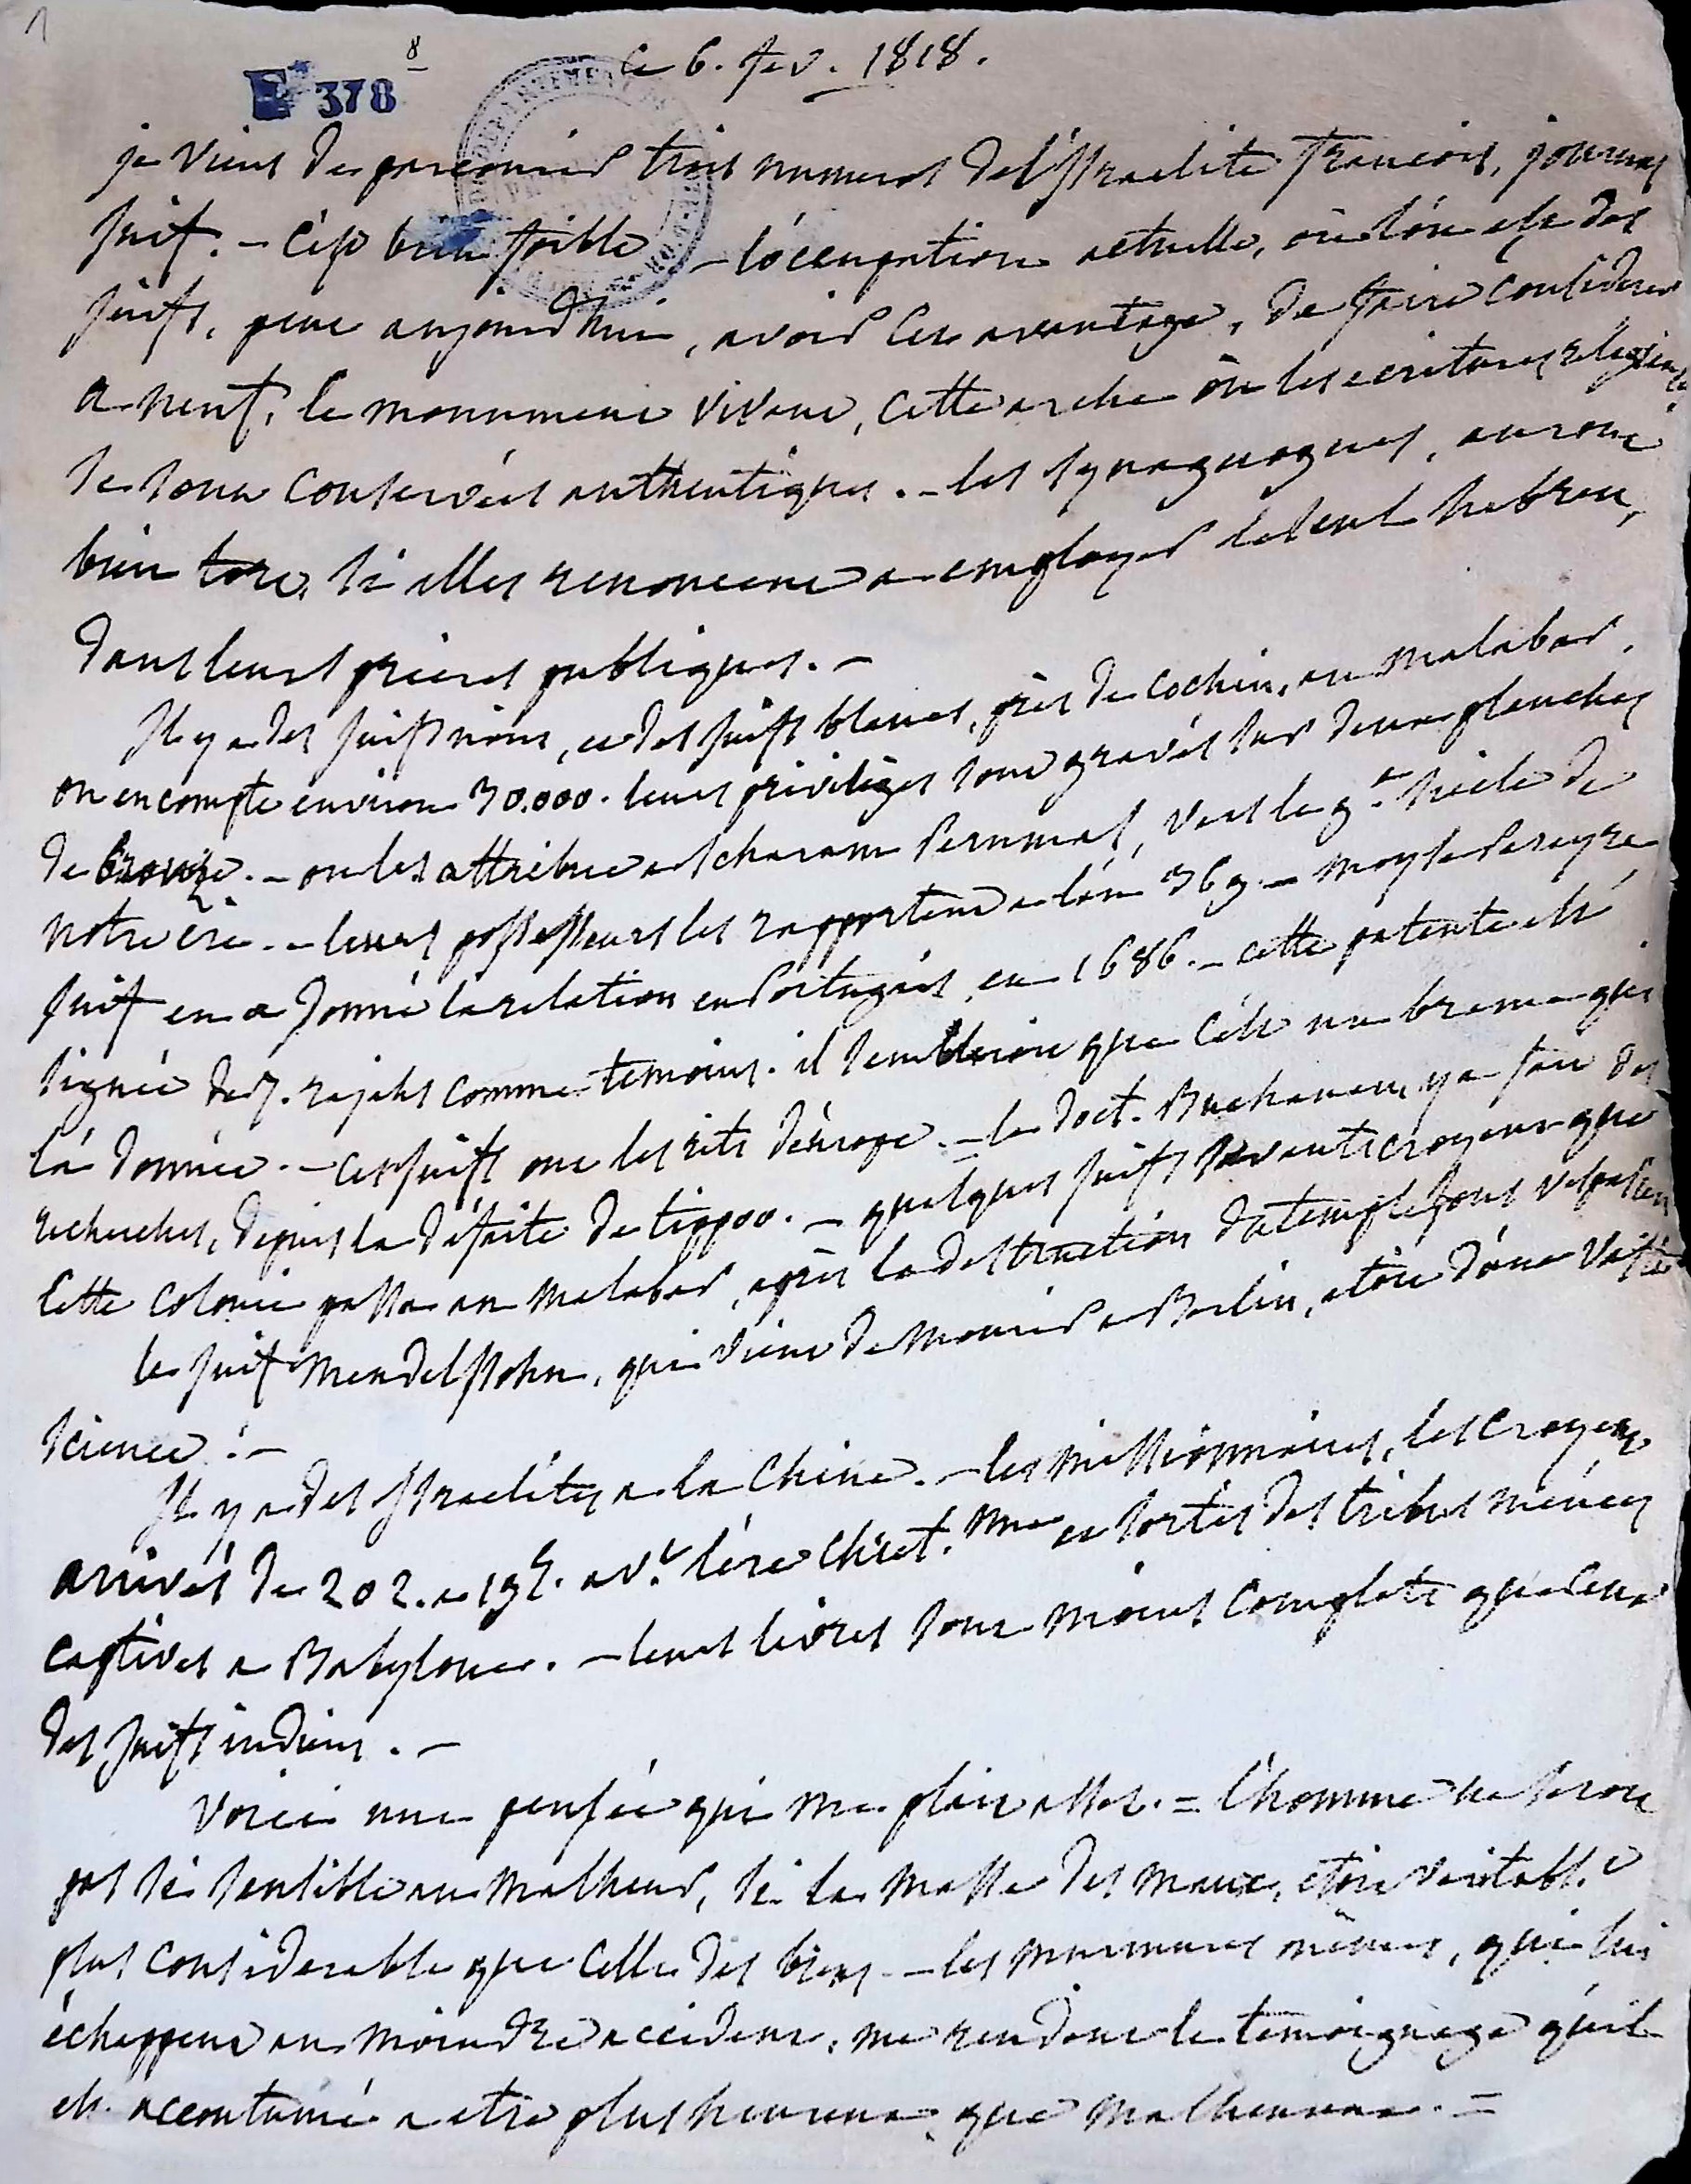 1
8
E 378
ce 6. fev. 1818.
je viens de parcourir trois numeros de l'israelite francois, journal
juif. - c'est bien foible - l'occupation actuelle, où l'on est des
juifs, peut aujourd'hui, avoir cet avantage, de faire considerer
a neuf, le monument vivant, cette arche où les ecritures religieuses
se sont conservées authentiques. - les synagogues, auront
bien tort, si elles renoncent a employer le seul hebreu,
dans leurs prieres publiques. -
Il y a des juifs noirs, et des juifs blancs, près de Cochin, au Malabar,
on en compte environ 30.000. leurs privilèges sont gravés sur deux planches
de bronze. - on les attribue a Scharam Perumal, vers le 9.e siecle de
notre ère. - leurs possesseurs les rapportent a l'an 369. - Moyse Pereyra
juif en a donné la relation en Portugais, en 1686. - cette patente est
signée de 7. rajahs comme temoins. il sembleroit que c'est un brame qui
l'a donnée. - ces juifs ont les rits d'europe. - le doct. Buchanan, y a fait des
recherches, depuis la défaite de tippoo. - quelques juifs savants croyent que
cette colonie passa au Malabar, après la destruction du temple sous vespasien
le juif Mendelssohn, qui vient de mourir a Berlin, etoit d'une vaste
science. -
Il y a des israelites a la Chine. - les missionnaires, les croyent
arrivés de 202. a 195. av.t l'ère Chret.nne et sortis des tribus menées
captives a Babylone. - leurs livres sont moins complets que ceux
des juifs indiens. -
Voici une pensée qui me plait assez. = l'homme ne seroit
pas si sensible au malheur, si la masse des maux, etoit veritabl.t
plus considerable que celle des biens - les murmures mêmes, qui lui
échappent au moindre accident, me rendent le temoignage qu'il
est accoutumé a etre plus heureux que malheureux. =